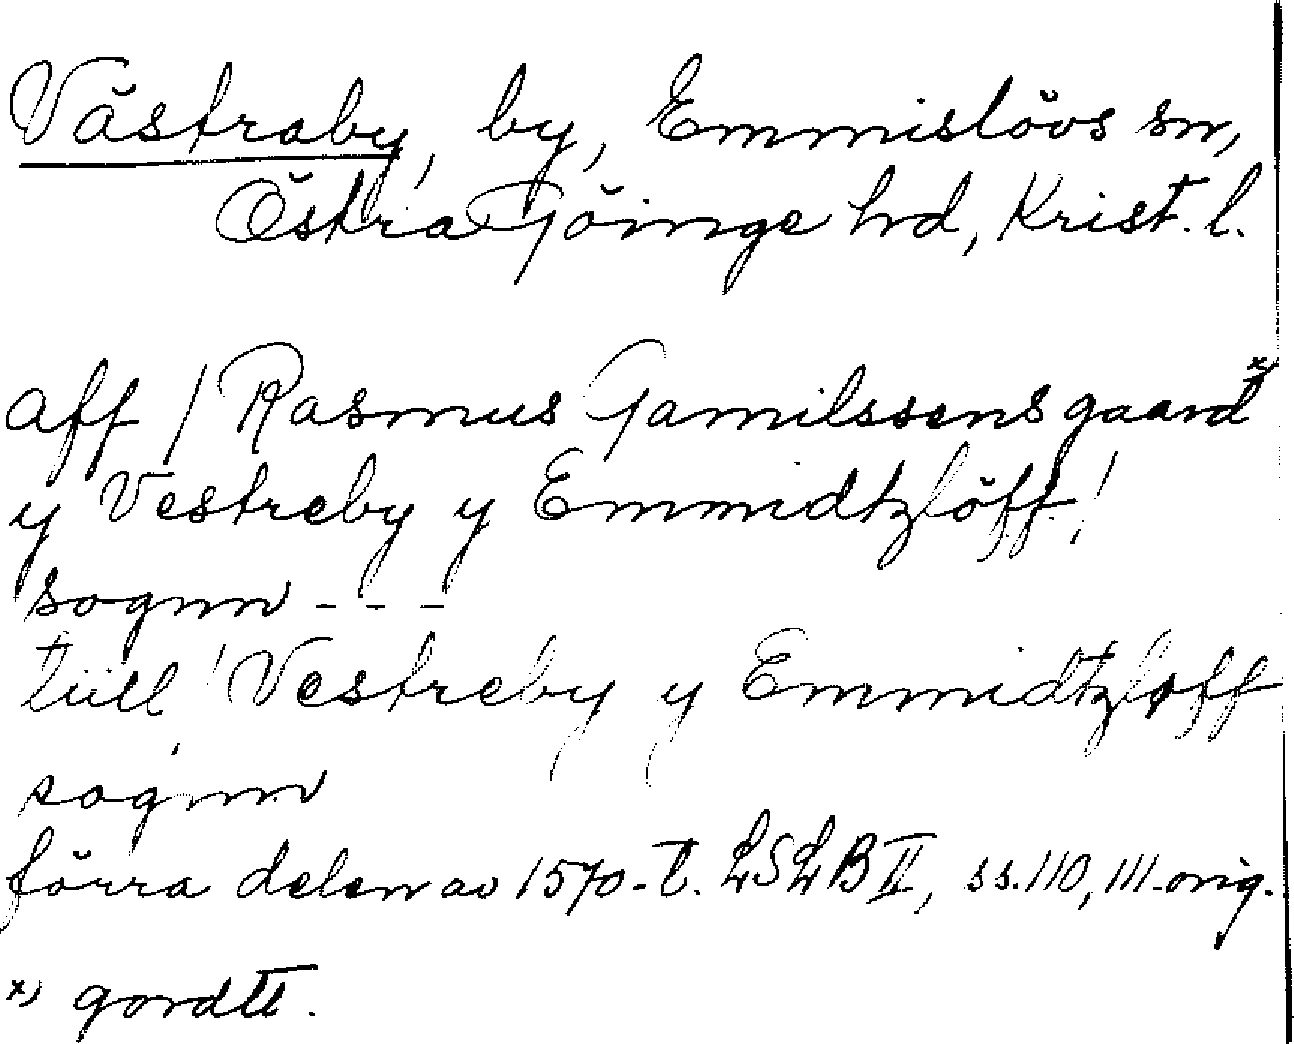 Västraby, by, Emmislövs sn,
Östra Göinge hd, Krist. l.
aff / Rasmus Gamilssens gaard x)
y Vestreby y Emmidtzlöff /
sognn - - -
tüll / Vestreby y Emmidtzloff
sognn
förra delen av 1570-t. LSLB II, ss. 110, 111 orig.
x) gordtt.